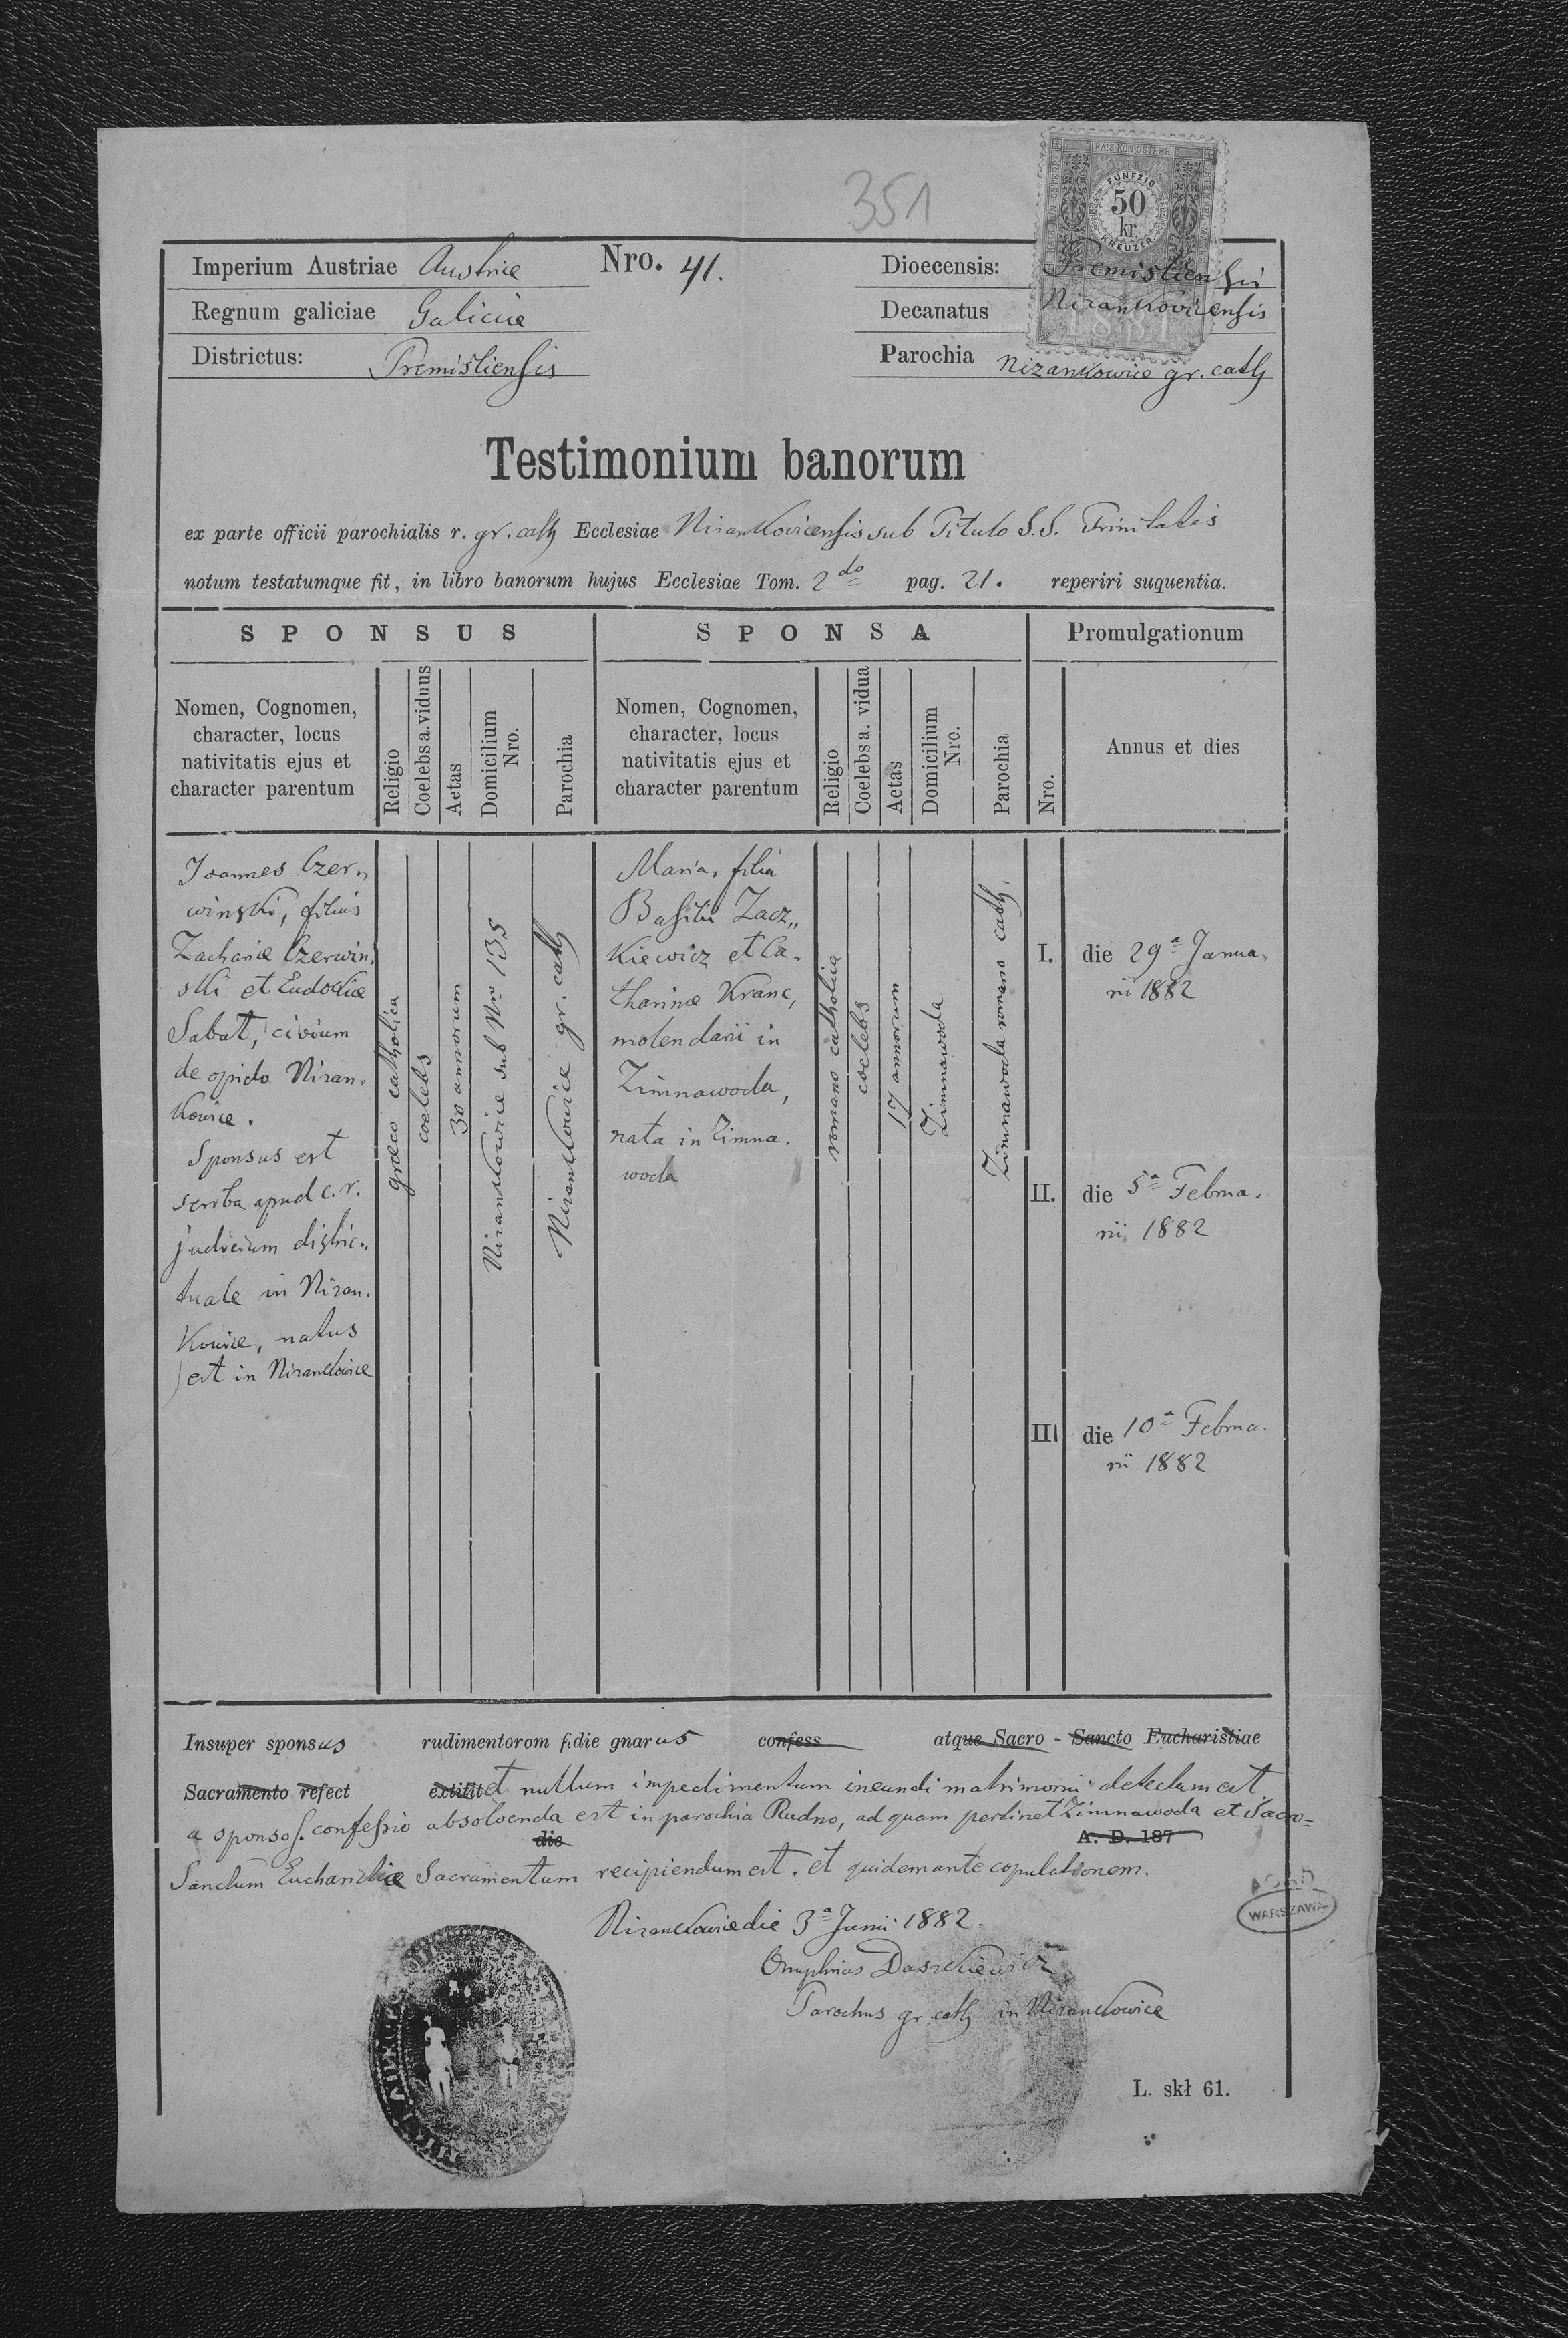 351
KAIS. KÖN. ÖSTERR.
FÜNFZIG
50
kr.
KREUZER
1881
Imperium Austriae Austriae
Nro. 41.
Dioecensis: Premisliensis
Regnum galiciae Galiciae
Decanatus Nizankovicensis
Districtus: Premisliensis
Parochia Nizankowice gr. cath
Testimonium banorum
ex parte officii parochialis r. gr. cath Ecclesiae Nizankovicensis sub Titulo S.S. Trinitatis
notum testatumque fit, in libro banorum hujus Ecclesiae Tom. 2do pag. 21. reperiri suquentia.
SPONSUS
SPONSA
Promulgationum
Nomen, Cognomen,
character, locus
nativitatis ejus et
character parentum
Religio
Coelebs a. viduus
Aetas
Domicilium
Nro.
Parochia
Nomen, Cognomen,
character, locus
nativitatis ejus et
character parentum
Religio
Coelebs a. vidua
Aetas
Domicilium
Nro.
Parochia
Nro.
Annus et dies
Joannes Czer„
winski, filius
Zachariae Czerwin.
ski et Eudociae
Sabat, civium
de opido Nizan.
kowice.
Sponsus est
scriba apud c. r.
judicium distric„
tuale in Nizan.
kowice, natus
est in Nizankowice
graeco catholica
coelebs
30 annorum
Nizankowice sub Nr 135
Nizankowice gr. cath
Maria, filia
Basilii Zacz„
kiewicz et Ca-
tharinae Kranc,
molendarii in
Zimnawoda,
nata in Zimna.
woda
romano catholica
coelebs
17 annorum
Zimnawoda
Zimnawoda romano cath.
I. die 29a Janua.
rii 1882
II. die 5a Februa.
rii 1882
III die 10a Februa.
rii 1882
Insuper sponsus rudimentorom fidie gnarus confess atque Sacro - Sancto Eucharistiae
Sacramento refect extitit et nullum impedimentum ineundi matrimonii detectum est
a sponso s. confessio absolvenda est in parochia Rudno, ad quam pertinet Zimnawoda et Sacro=
die A. D. 187
Sanctum Eucharistiae Sacramentum recipiendum est. et quidem ante copulationem.
Nizankowice die 3a Junii 1882.
Onuphrius Daszkiewicz
Parochus gr. cath in Nizankowice
AGAD
WARSZAWA
L. skł 61.